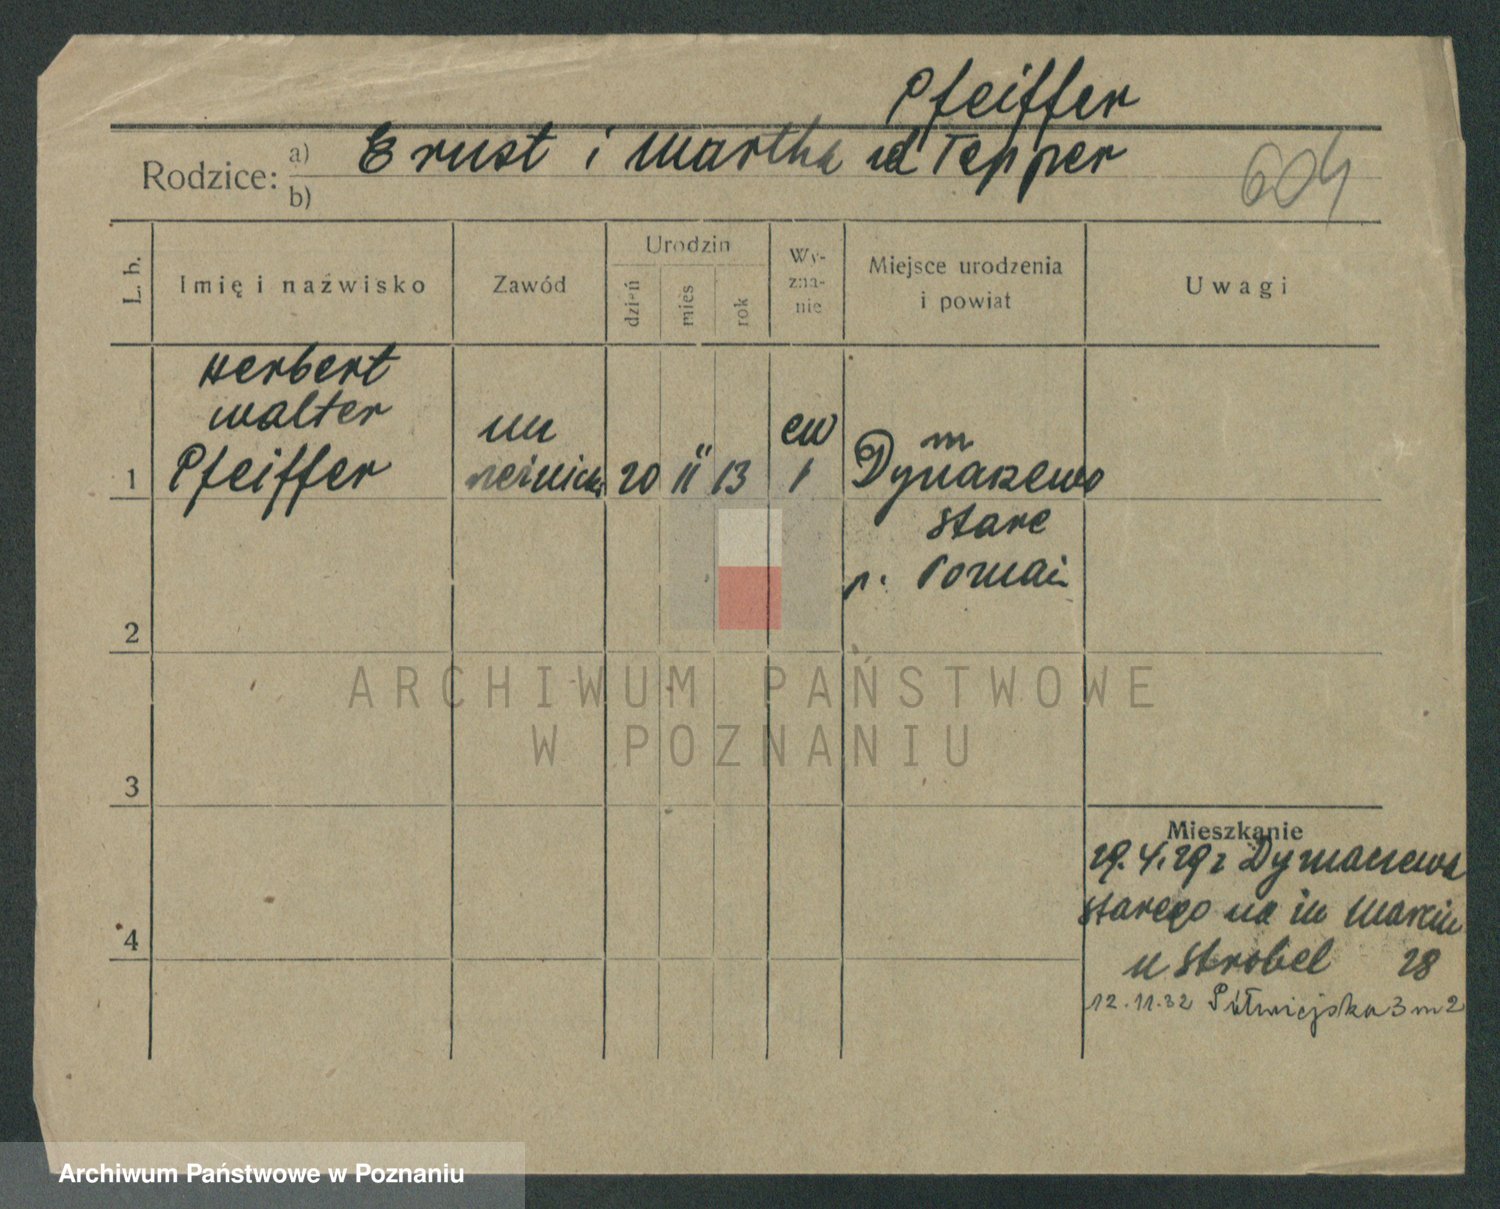 Pfeiffer
Rodzice: a) Ernst i Martha zd Tepper
b)
604
L. b. Imię i nazwisko Zawód Urodzin dzień mies rok Wyznanie Miejsce urodzenia i powiat Uwagi
Herbert
Walter
Pfeiffer
1
uu
20 II 13
ew
Dymaczewo
stare
p. Poznań
2
3
4
ARCHIWUM PAŃSTWOWE
W POZNANIU
Mieszkanie
29.4.29 z Dymaczewa
starego na św Marcin
u Strobel 28
12.11.32 Półwiejska 3 m 2
Archiwum Państwowe w Poznaniu